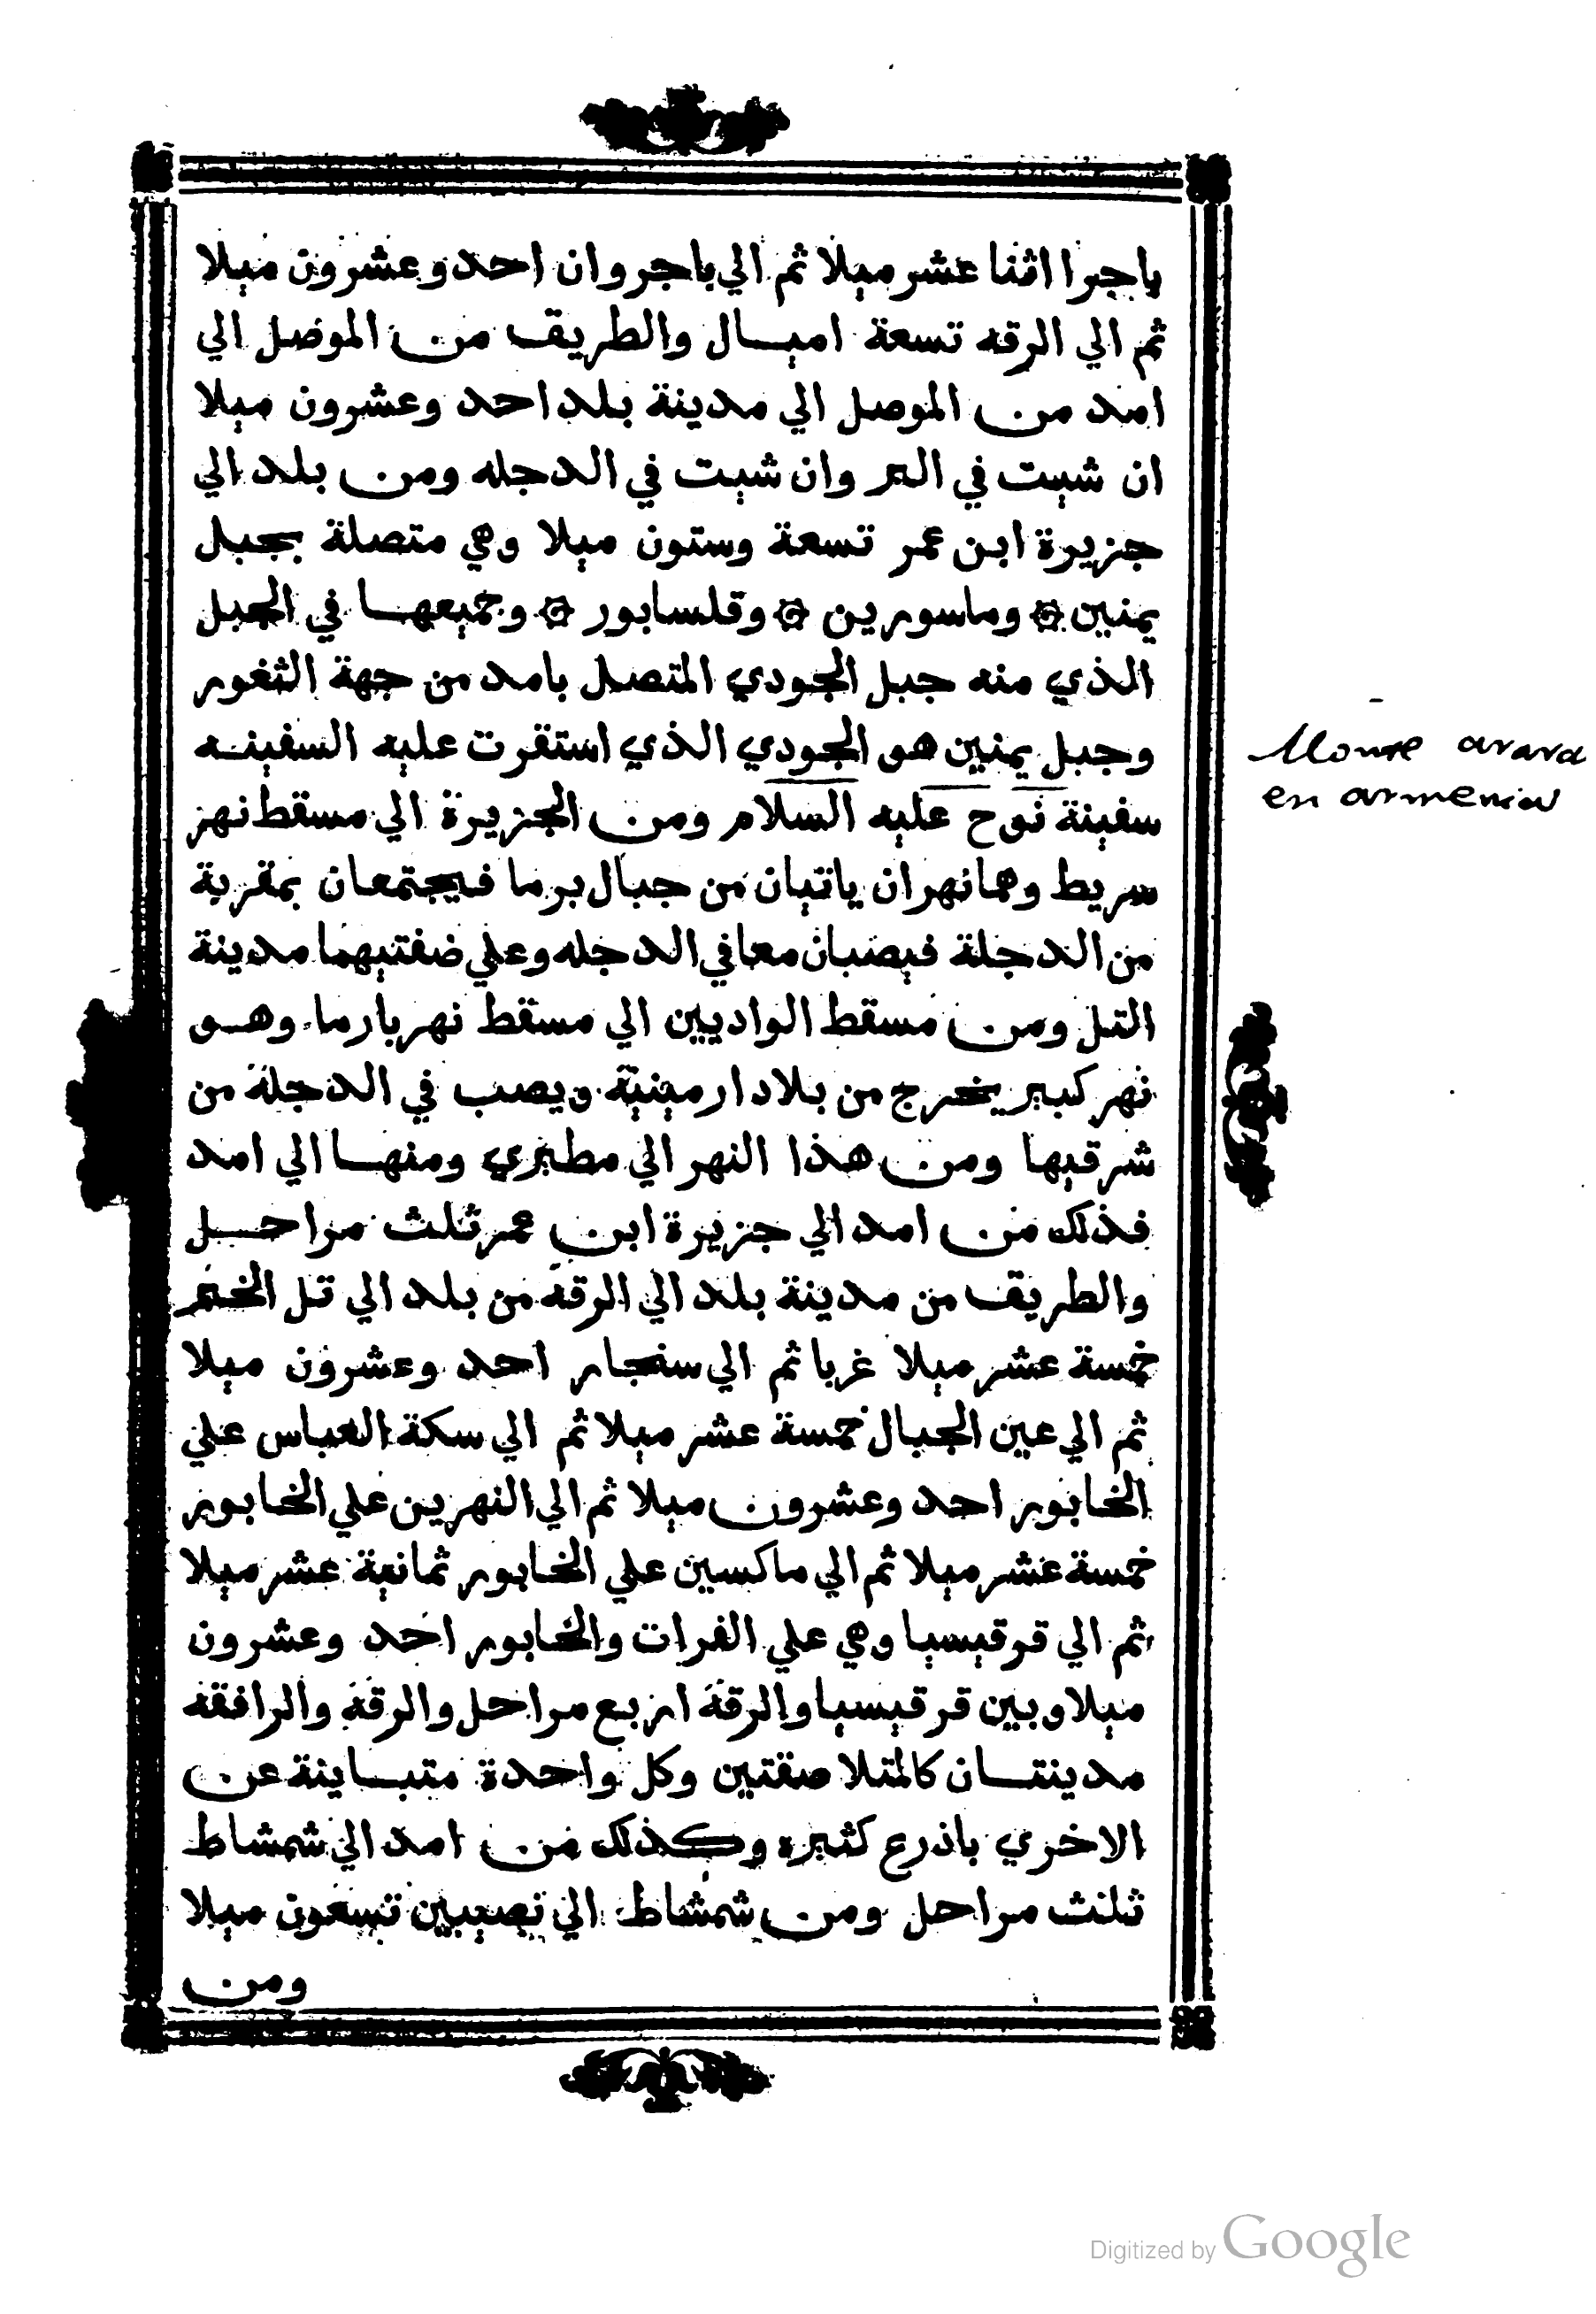 باجرا اثنا عشر ميلا ثم الي باجروان احد وعشرون ميلا
ثم الي الرقه تسعة اميال والطريق من الموصل الي
امد من الموصل الي مدينة بلد احد وعشرون ميلا
ان شيت في البر وان شيت في الدجله ومن بلد الي
جزيرة ابن عمر تسعة وستون ميلا وهي متصلة بجبل
يمنين وماسورين وقلسابور وجميعها في الجبل
الذي منه جبل الجودي المتصل بامد من جهة الثغور
وجبل يمنين هو الجودي الذي استقرت عليه السفينه
سفينة نوح عليه السلام ومن الجزيرة الي مسقط نهر
سريط وهما نهران ياتيان من جبال برما فيجتمعان بمقربة
من الدجلة فيصبان معا في الدجله وعلي ضفتيهما مدينة
التل ومن مسقط الواديين الي مسقط نهر بارما وهو
نهر كبير يخرج من بلاد ارمينية ويصب في الدجلة من
شرقيها ومن هذا النهر الي مطبري ومنها الي امد
فذلك من امد الي جزيرة ابن عمر ثلث مراحل
والطريق من مدينة بلد الي الرقه من بلد الي تل الخير
خمسة عشر ميلا غربا ثم الي سنجار احد وعشرون ميلا
ثم الي عين الجبال خمسة عشر ميلا ثم الي سكة العباس علي
الخابور احد وعشرون ميلا ثم الي النهرين علي الخابور
خمسة عشر ميلا ثم الي ماكسين علي الخابور ثمانية عشر ميلا
ثم الي قرقيسيا وهي علي الفرات والخابور احد وعشرون
ميلا وبين قرقيسيا والرقة اربع مراحل والرقة والرافقه
مدينتان كالمتلاصقتين وكل واحدة متباينة عن
الاخري باذرع كثيره وكذلك من امد الي شمشاط
ثلث مراحل ومن شمشاط الي نصيبين تسعون ميلا
ومن
Monte arara
en armenia
Digitized by Google